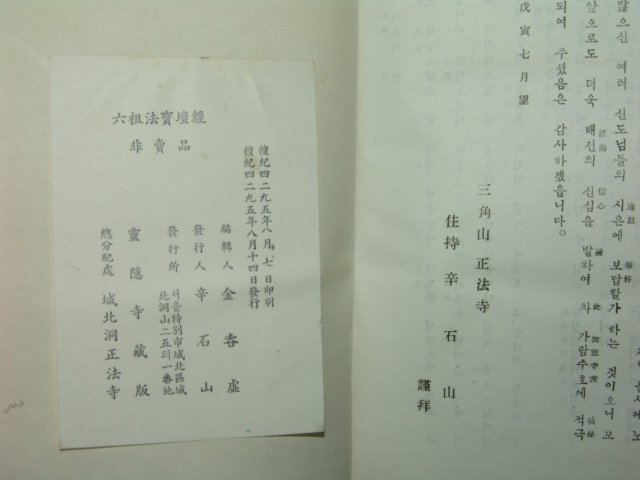 많으신 여러 신도님들의 시은에 보답할가 하는 것이오니 모
施恩 報答
앞으로도 더욱 배전의 신심을 발하여 차 가람수호에 적극
倍前 信心 發 此 積極
되여 주셨음은 감사하겠읍니다。
戊寅七月望
三角山 正法寺
住持 辛石山 謹拜
六祖法寶壇經
非賣品
檀紀四二九五年八月 七 日印刷
檀紀四二九五年八月十四日發行
編輯人 金呑虛
發行人 辛石山
發行所 서울特別市城北區城
北洞山二五의一番地
靈隱寺藏版
總分配處 城北洞正法寺